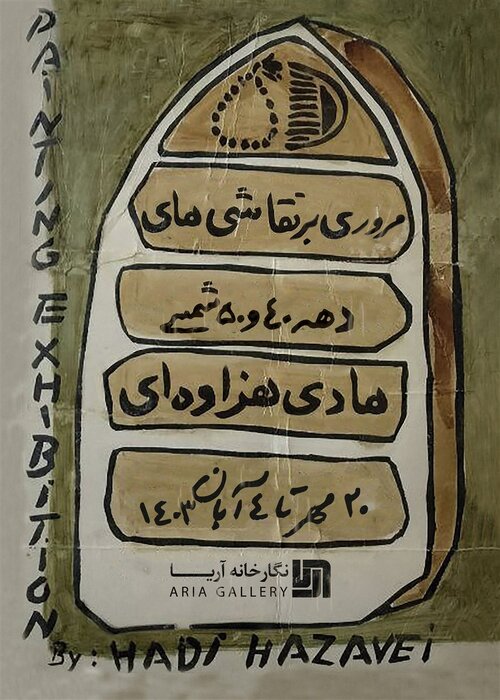 PAINTING EXHIBITION
مروری بر نقاشی های
دهه ۴۰ و ۵۰ شمسی
هادی هزاوه‌ای
۲۰ مهر تا ۴ آبان ۱۴۰۳
نگارخانه آریا
ARIA GALLERY
By: HADi HAZAVEi